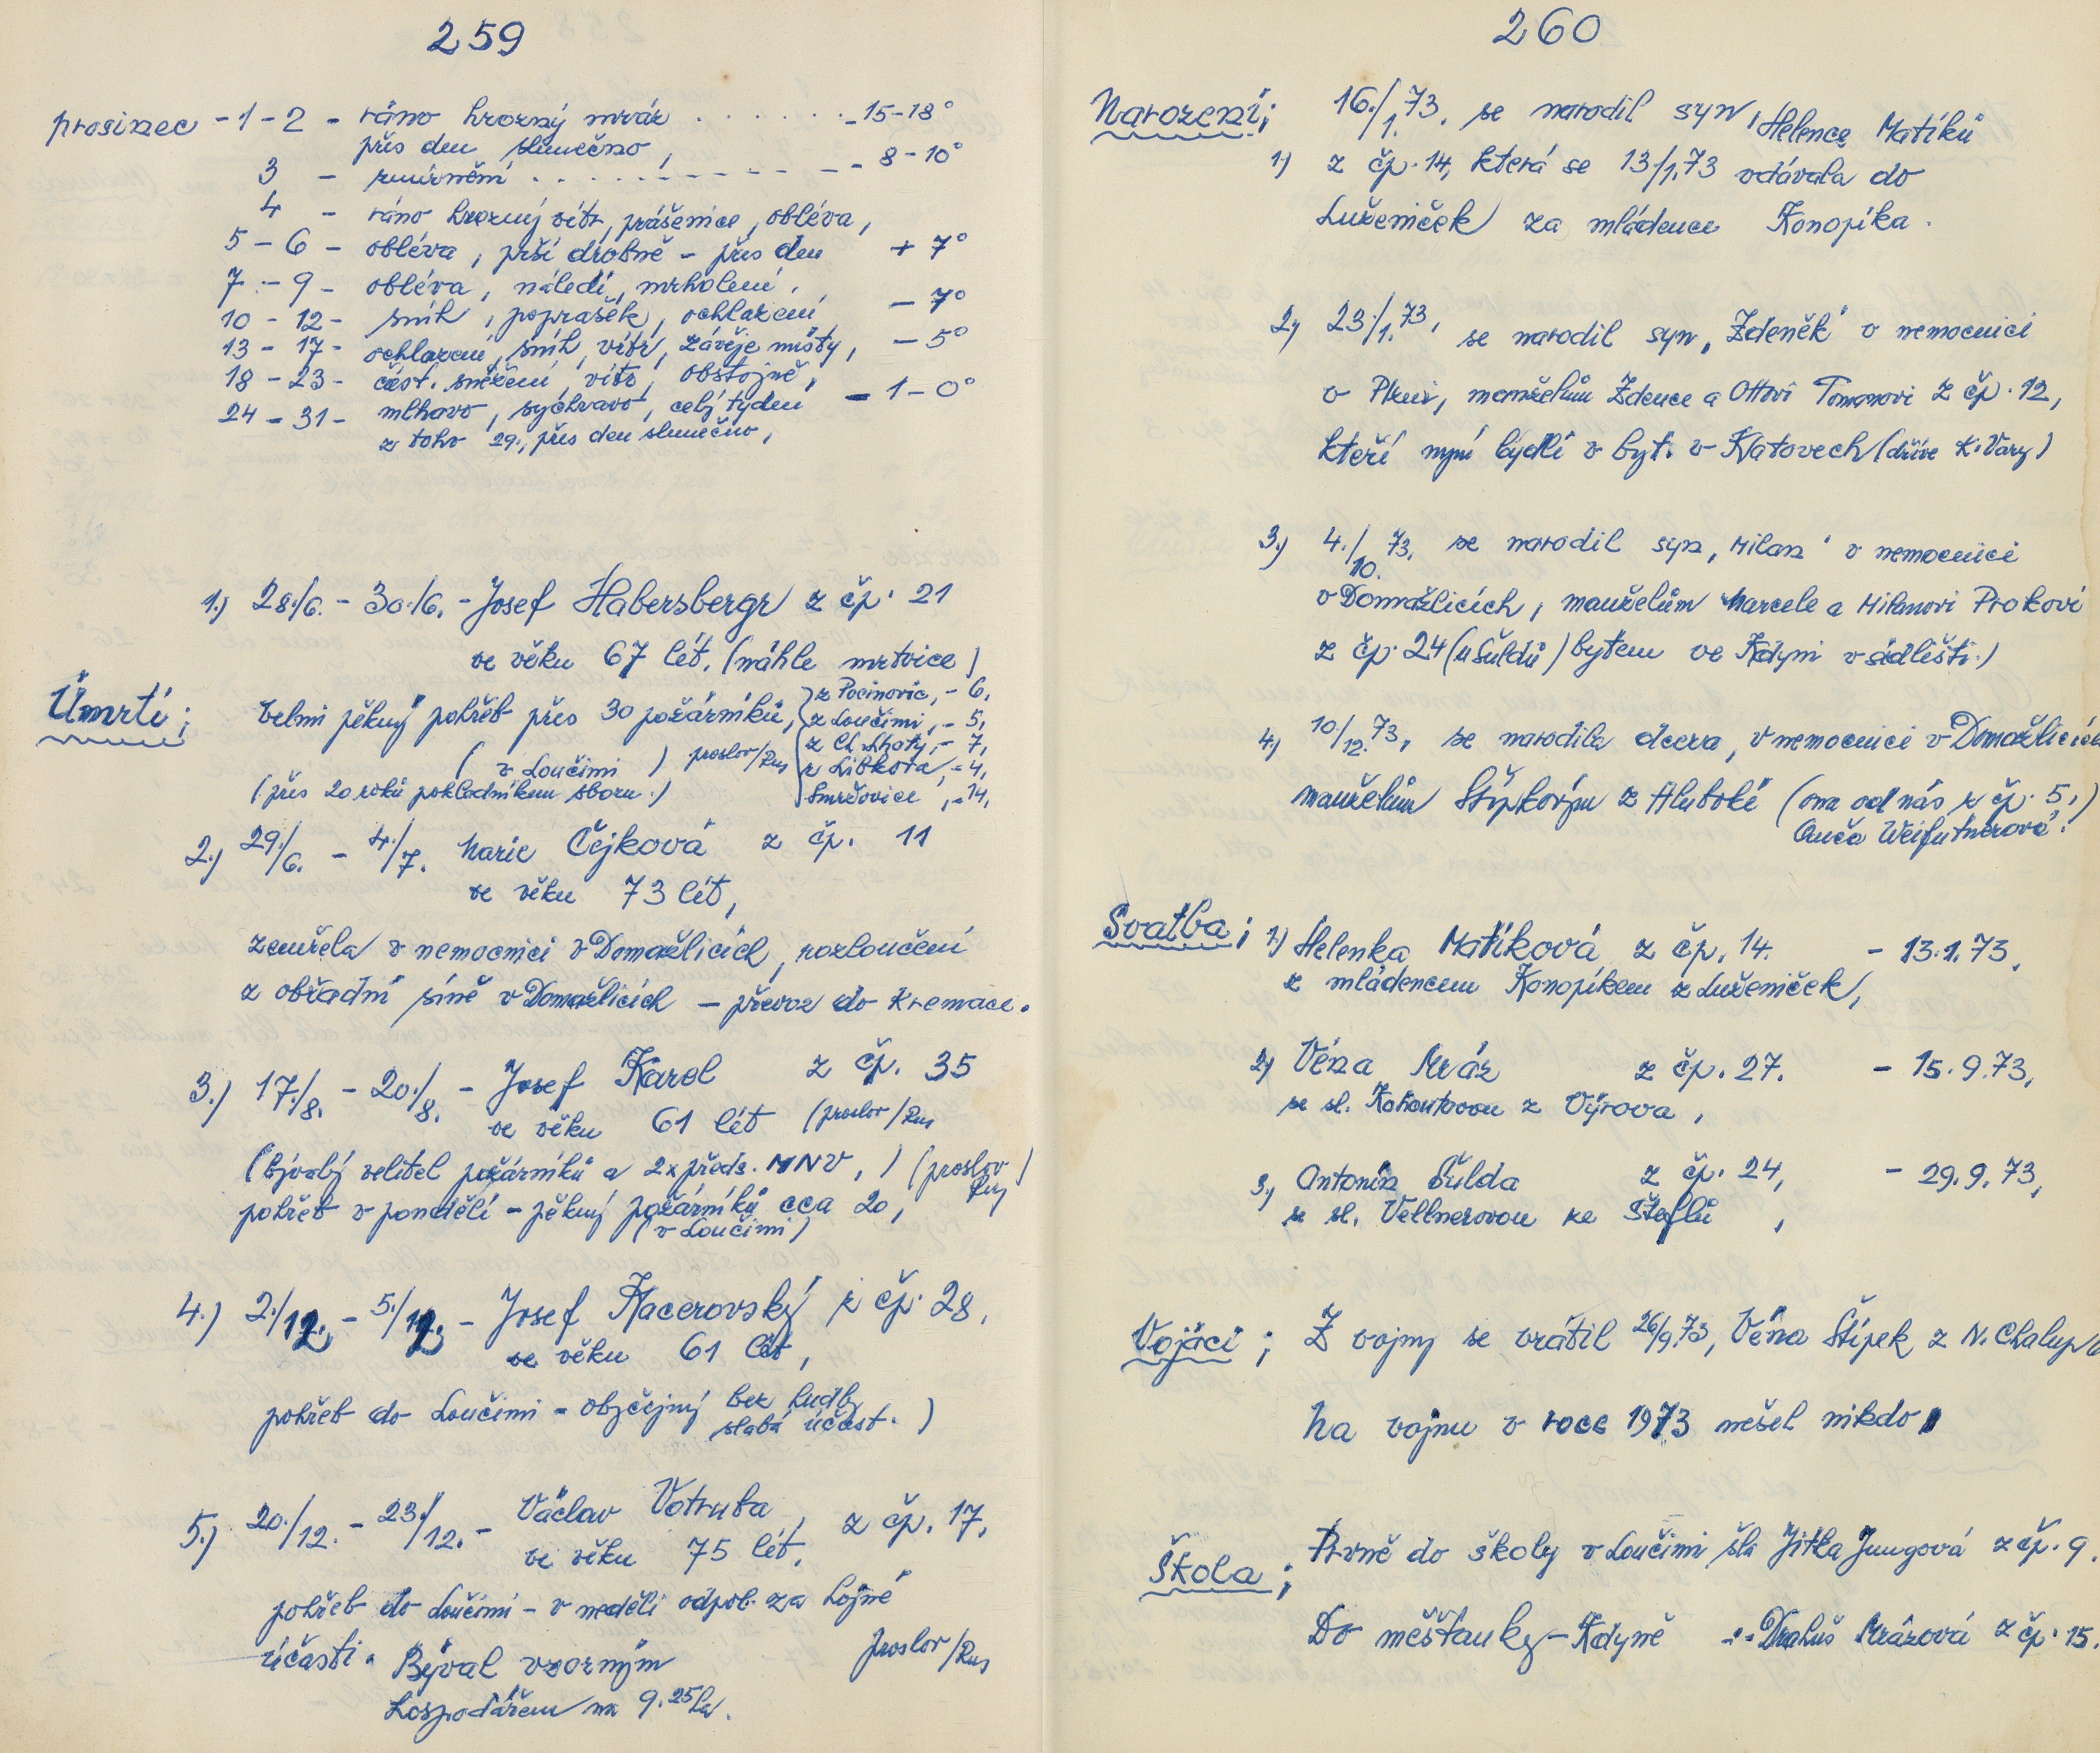 259
prosinec - 1 - 2 - ráno hrozný mráz . . . . . . - 15-18°
přes den slunečno,
3 - zmírnění . . . . . . . . - 8-10°
4 - ráno hrozný vítr, prášenice, obléva,
5 - 6 - obléva, prší drobně - přes den + 7°
7 - 9 - obléva, náledí, mrholení,
10 - 12 - sníh, poprašek, ochlazení - 7°
13 - 17 - ochlazení, sníh, vítr, závěje místy, - 5°
18 - 23 - část. sněžení, vítr, obstojně,
24 - 31 - mlhavo, sychravo, celý týden - 1-0°
z toho 29., přes den slunečno,
1.) 28./6. - 30./6. - Josef Habersbergr z čp. 21
ve věku 67 lét. (náhle mrtvice)
Úmrtí; velmi pěkný pohřeb přes 30 požárníků,
z Pocinovic, - 6,
z Loučimi, - 5,
z Ch. Lhoty, - 7,
z Libkova, - 4,
Smržovice, - 14,
(v Loučimi) proslov/Rus
(přes 20 roků pokladníkem sboru.)
2.) 29./6. - 4./7. Marie Čejková z čp. 11
ve věku 73 lét,
zemřela v nemocnici v Domažlicích, rozloučení
z obřadní síně v Domažlicích - převoz do kremace.
3.) 17./8. - 20./8. - Josef Karel z čp. 35
ve věku 61 lét (proslov/Rus
(bývalý velitel požárníků a 2x předs. MNV,) (proslov Rus)
pohřeb v pondělí - pěkný požárníků cca 20,
(v Loučimi)
4.) 2./12. - 5./12. - Josef Kacerovský z čp. 28,
ve věku 61 lét,
pohřeb do Loučimi - obyčejný bez hudby
slabá účast.)
5.) 20./12. - 23./12. - Václav Votruba, z čp. 17,
ve věku 75 lét,
pohřeb do Loučimi - v neděli odpol. za hojné
účasti. Býval vzorným proslov/Rus
hospodářem na 9.25 ha.
260
Narození; 16./1.73. se narodil syn, Helence Matíků
1.) z čp. 14, která se 13/1.73 vdávala do
Luženiček za mládence Konopíka.
2.) 23./1.73, se narodil syn „Zdeněk" v nemocnici
v Plzni, manželům Zdence a Ottovi Tomanovi z čp. 12,
kteří nyní bydlí v byt. v Klatovech (dříve K. Vary)
3.) 4./10.73. se narodil syn „Milan" v nemocnici
v Domažlicích, manželům Marcele a Milanovi Prokovi
z čp. 24 (u Šuldů) bytem ve Kdyni v sídlišti.)
4.) 10/12.73, se narodila dcera, v nemocnici v Domažlicích
manželům Štípkovým z Hluboké (ona od nás z čp. 5,)
Anča Weifutnerová.
Svatba; 1.) Helenka Matíková z čp. 14. - 13.1.73,
z mládencem Konopíkem z Luženiček,
2.) Véna Mráz z čp. 27. - 15.9.73,
se sl. Kohoutovou z Výrova,
3.) Antonín Šulda z čp. 24, - 29.9.73,
se sl. Vellnerovou ke Šteflů,
Vojáci; Z vojny se vrátil 26/9.73, Véna Štípek z N. Chalup/
Na vojnu v roce 1973 nešel nikdo,
Škola; Prvně do školy v Loučimi šla Jitka Jungová z čp. 9.
Do měšťanky - Kdyně -"- Drahuš Mrázová z čp. 15.